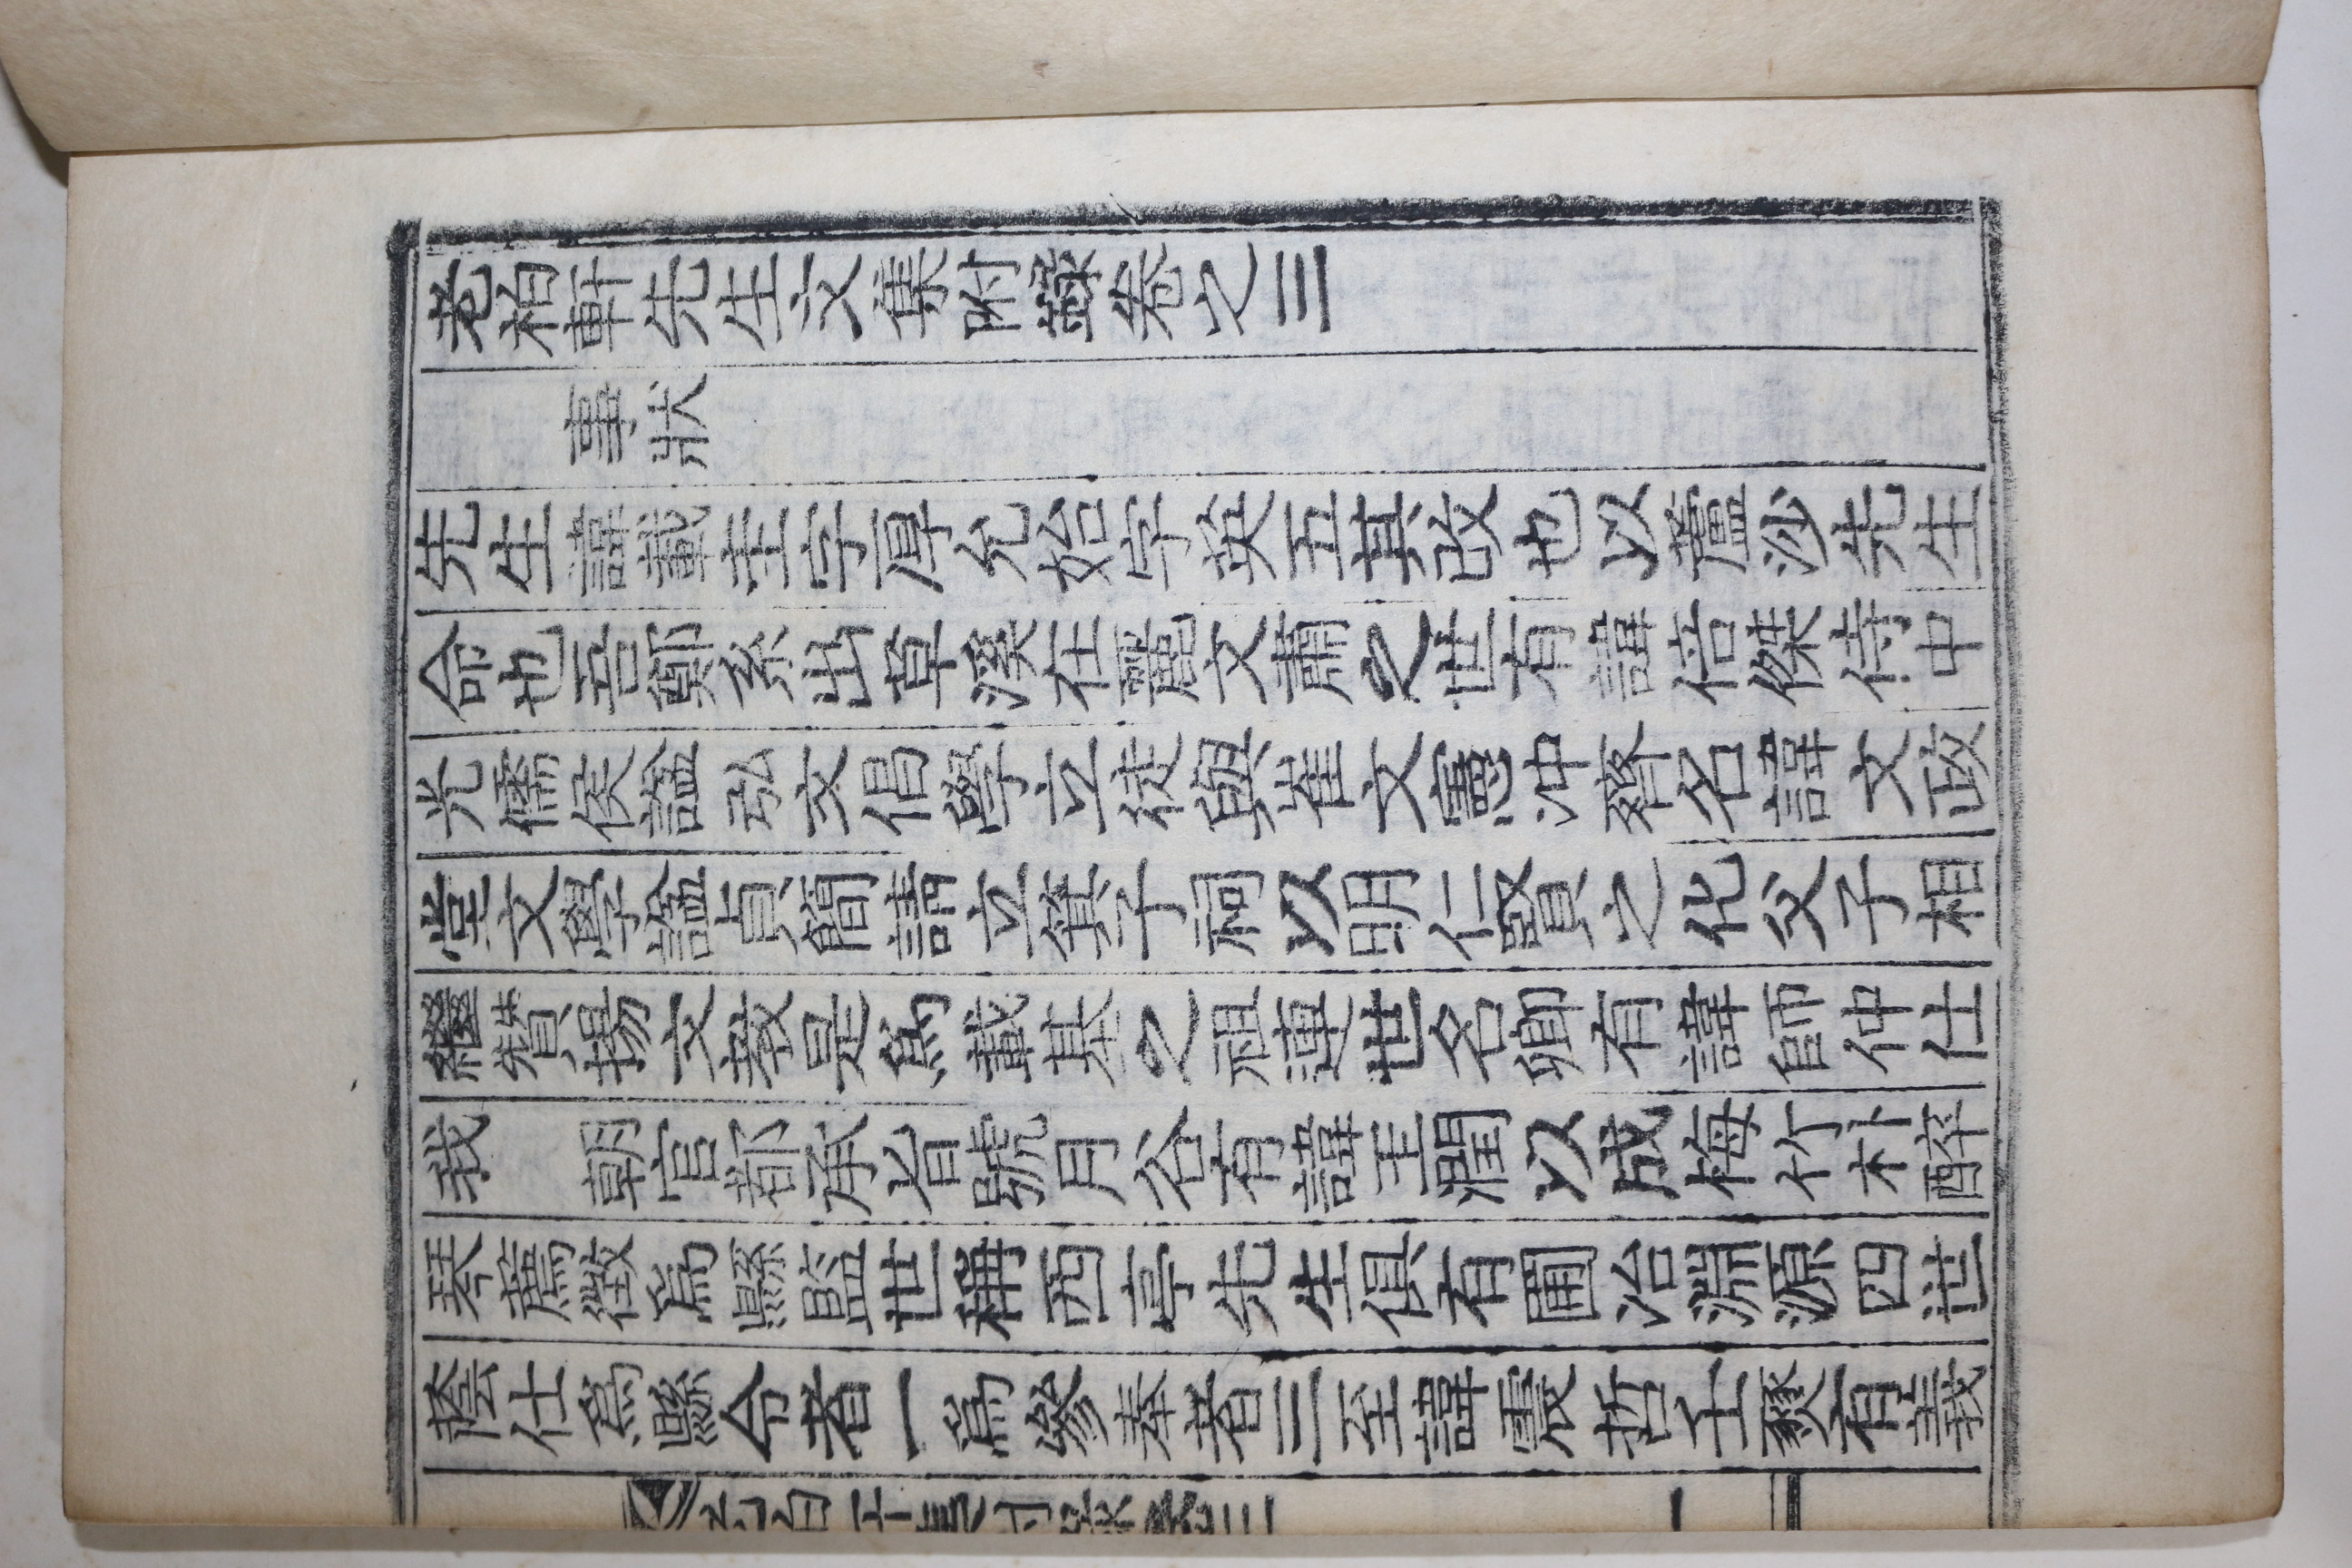 老柏軒先生文集附錄卷之三
事狀
先生諱載圭字厚允始字英五其改也以蘆沙先生
命也吾鄭系出草溪在麗文肅之世有諱倍傑侍中
光儒侯諡弘文倡學立徒與崔文憲冲齊名諱文政
堂文學諡貞簡請立箕子祠以明仁賢之化父子相
繼贊揚文教是爲載基之祖連世名卿有諱師仲仕
我 朝官都承旨號月谷有諱玉潤以成梅竹朴醉
琴薦徵爲縣監世稱西亭先生俱有圃冶淵源四世
蔭仕爲縣令者一爲參奉者三至諱震哲壬燹有義
老白軒集附錄卷三
一